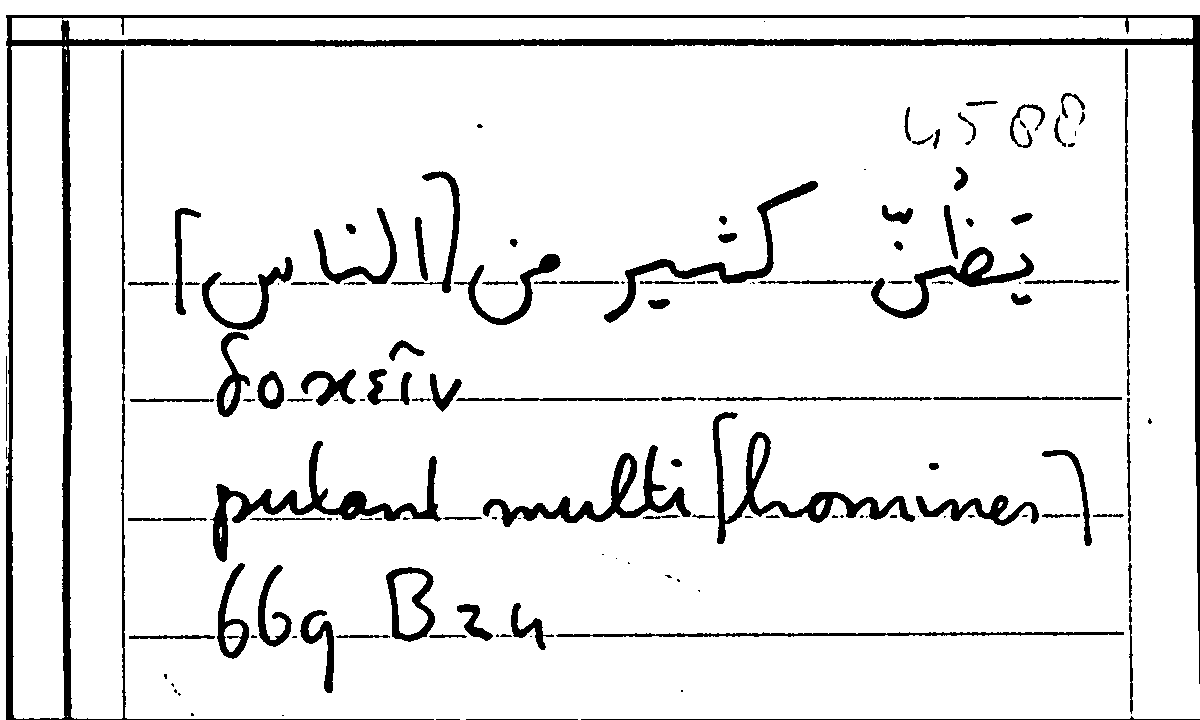 4588
يَظُنّ كثير من [الناس]
δοκεῖν
putant multi [homines]
669 B 24